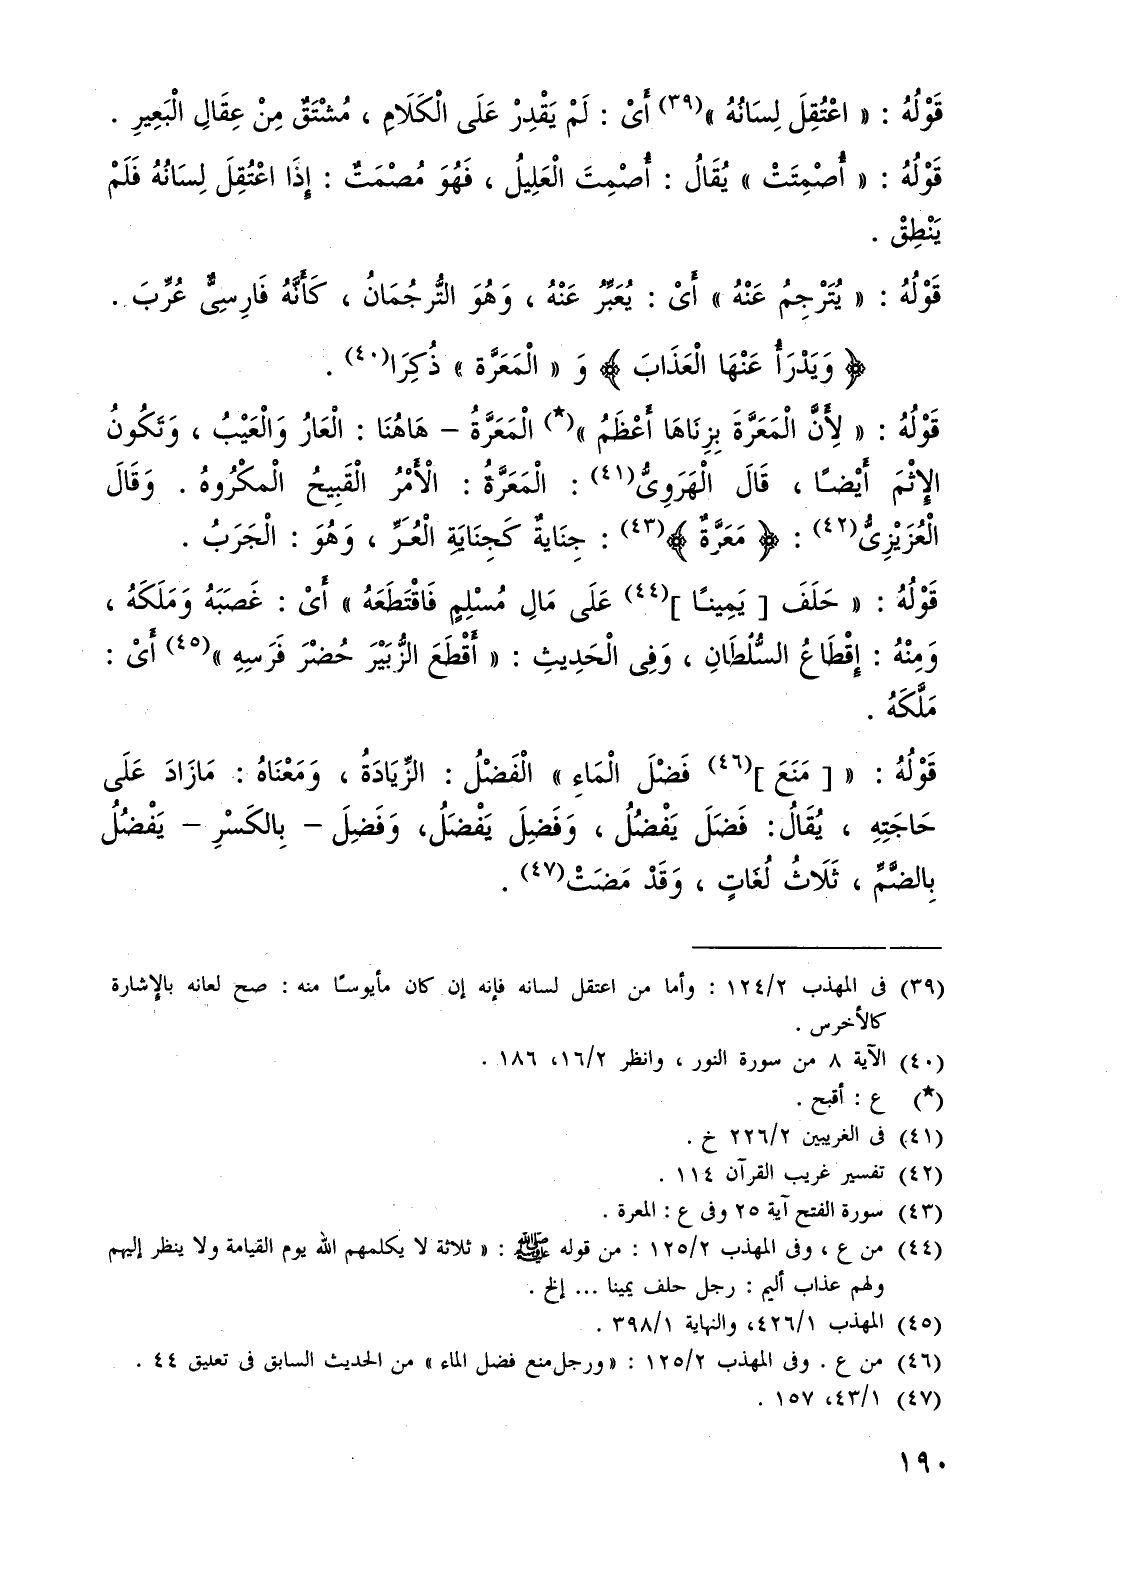 قَوْلُهُ : « اعْتُقِلَ لِسَانُهُ »(٣٩) أَىْ : لَمْ يَقْدِرْ عَلَى الْكَلَامِ ، مُشْتَقٌّ مِنْ عِقَالِ الْبَعِيرِ .
قَوْلُهُ : « أُصْمِتَتْ » يُقَالُ : أُصْمِتَ الْعَلِيلُ ، فَهُوَ مُصْمَتٌ : إِذَا اعْتُقِلَ لِسَانُهُ فَلَمْ
يَنْطِقْ .
قَوْلُهُ : « يُتَرْجِمُ عَنْهُ » أَىْ : يُعَبِّرُ عَنْهُ ، وَهُوَ التُّرجُمَانُ ، كَأَنَّهُ فَارِسِىٌّ عُرِّبَ .
﴿ وَيَدْرَأُ عَنْهَا الْعَذَابَ ﴾ وَ « الْمَعَرَّة » ذُكِرَا(٤٠) .
قَوْلُهُ : « لِأَنَّ الْمَعَرَّةَ بِزِنَاهَا أَعْظَمُ »(★) الْمَعَرَّةُ – هَاهُنَا : الْعَارُ وَالْعَيْبُ ، وَتَكُونُ
الإِثْمَ أَيْضًا ، قَالَ الْهَرَوِىُّ(٤١) : الْمَعَرَّةُ : الْأَمْرُ الْقَبِيحُ الْمكْرُوهُ . وَقَالَ
الْعُزَيْزِىُّ(٤٢) : ﴿ مَعَرَّةٌ ﴾(٤٣) : جِنَايةٌ كَجِنَايَةِ الْعُرِّ ، وَهُوَ : الْجَرَبُ .
قَوْلُهُ : « حَلَفَ [ يَمِينًا ](٤٤) عَلَى مَالِ مُسْلِمٍ فَاقْتَطَعَهُ » أَىْ : غَصَبَهُ وَمَلَكَهُ ،
وَمِنْهُ : إِقْطَاعُ السُّلْطَانِ ، وَفِى الْحَدِيثِ : « أَقْطَعَ الزُّبَيْرَ حُضْرَ فَرَسِهِ »(٤٥) أَىْ :
مَلَّكَهُ .
قَوْلُهُ : « [ مَنَعَ ](٤٦) فَضْلَ الْمَاءِ » الْفَضْلُ : الزِّيَادَةُ ، وَمَعْنَاهُ : مَازَادَ عَلَى
حَاجَتِهِ ، يُقَالُ : فَضَلَ يَفْضُلُ ، وَفَضِلَ يَفْضَلُ، وَفَضِلَ – بِالكَسْرِ – يَفْضُلُ
بِالضَّمِّ ، ثَلَاثُ لُغَاتٍ ، وَقَدْ مَضَتْ(٤٧) .
(٣٩) فى المهذب ١٢٤/٢ : وأما من اعتقل لسانه فإنه إن كان مأيوسًا منه : صح لعانه بالإشارة
كالأخرس .
(٤٠) الآية ٨ من سورة النور ، وانظر ١٦/٢، ١٨٦ .
(★) ع : أقبح .
(٤١) فى الغريبين ٢٢٦/٢ خ .
(٤٢) تفسير غريب القرآن ١١٤ .
(٤٣) سورة الفتح آية ٢٥ وفى ع : المعرة .
(٤٤) من ع ، وفى المهذب ١٢٥/٢ : من قوله ﷺ : « ثلاثة لا يكلمهم الله يوم القيامة ولا ينظر إليهم
ولهم عذاب أليم : رجل حلف يمينا ... إلخ .
(٤٥) المهذب ٤٢٦/١، والنهاية ٣٩٨/١ .
(٤٦) من ع . وفى المهذب ١٢٥/٢ : « ورجل منع فضل الماء » من الحديث السابق فى تعليق ٤٤ .
(٤٧) ٤٣/١، ١٥٧ .
١٩٠